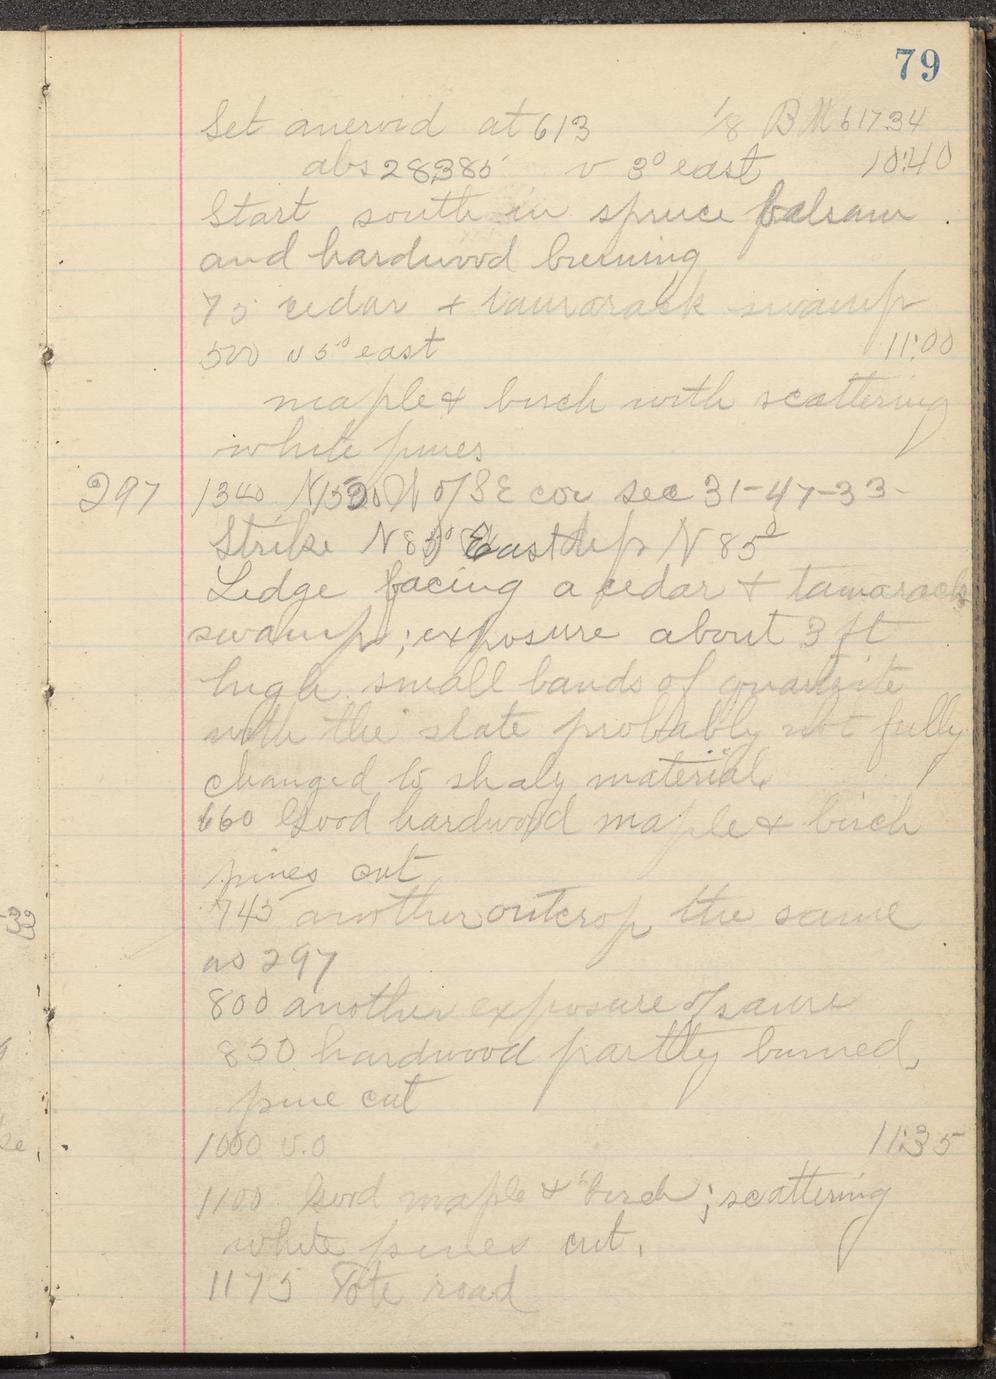 79
Set aneroid at 613 1/8 BM 61734
abs 28385 v 3° east 10:40
Start south in spruce balsam
and hardwood burning
75 cedar + tamarack swamp
500 v 5° east 11:00
maple & birch with scattering
white pines
297 1340 N 1520 W of SE cor sec 31-47-33-
Strike N 85° East dip N 85°
Ledge facing a cedar + tamarack
swamp; exposure about 3 ft
high small bands of quartzite
with the slate probably not fully
changed to shaly material.
660 Good hardwood maple & birch
pines cut
745 another outcrop the same
as 297
800 another exposure of same
850 hardwood partly burned,
pine cut
1000 v.0 11:35
1100 Good maple & birch; scattering
white pines cut.
1175 Tote road